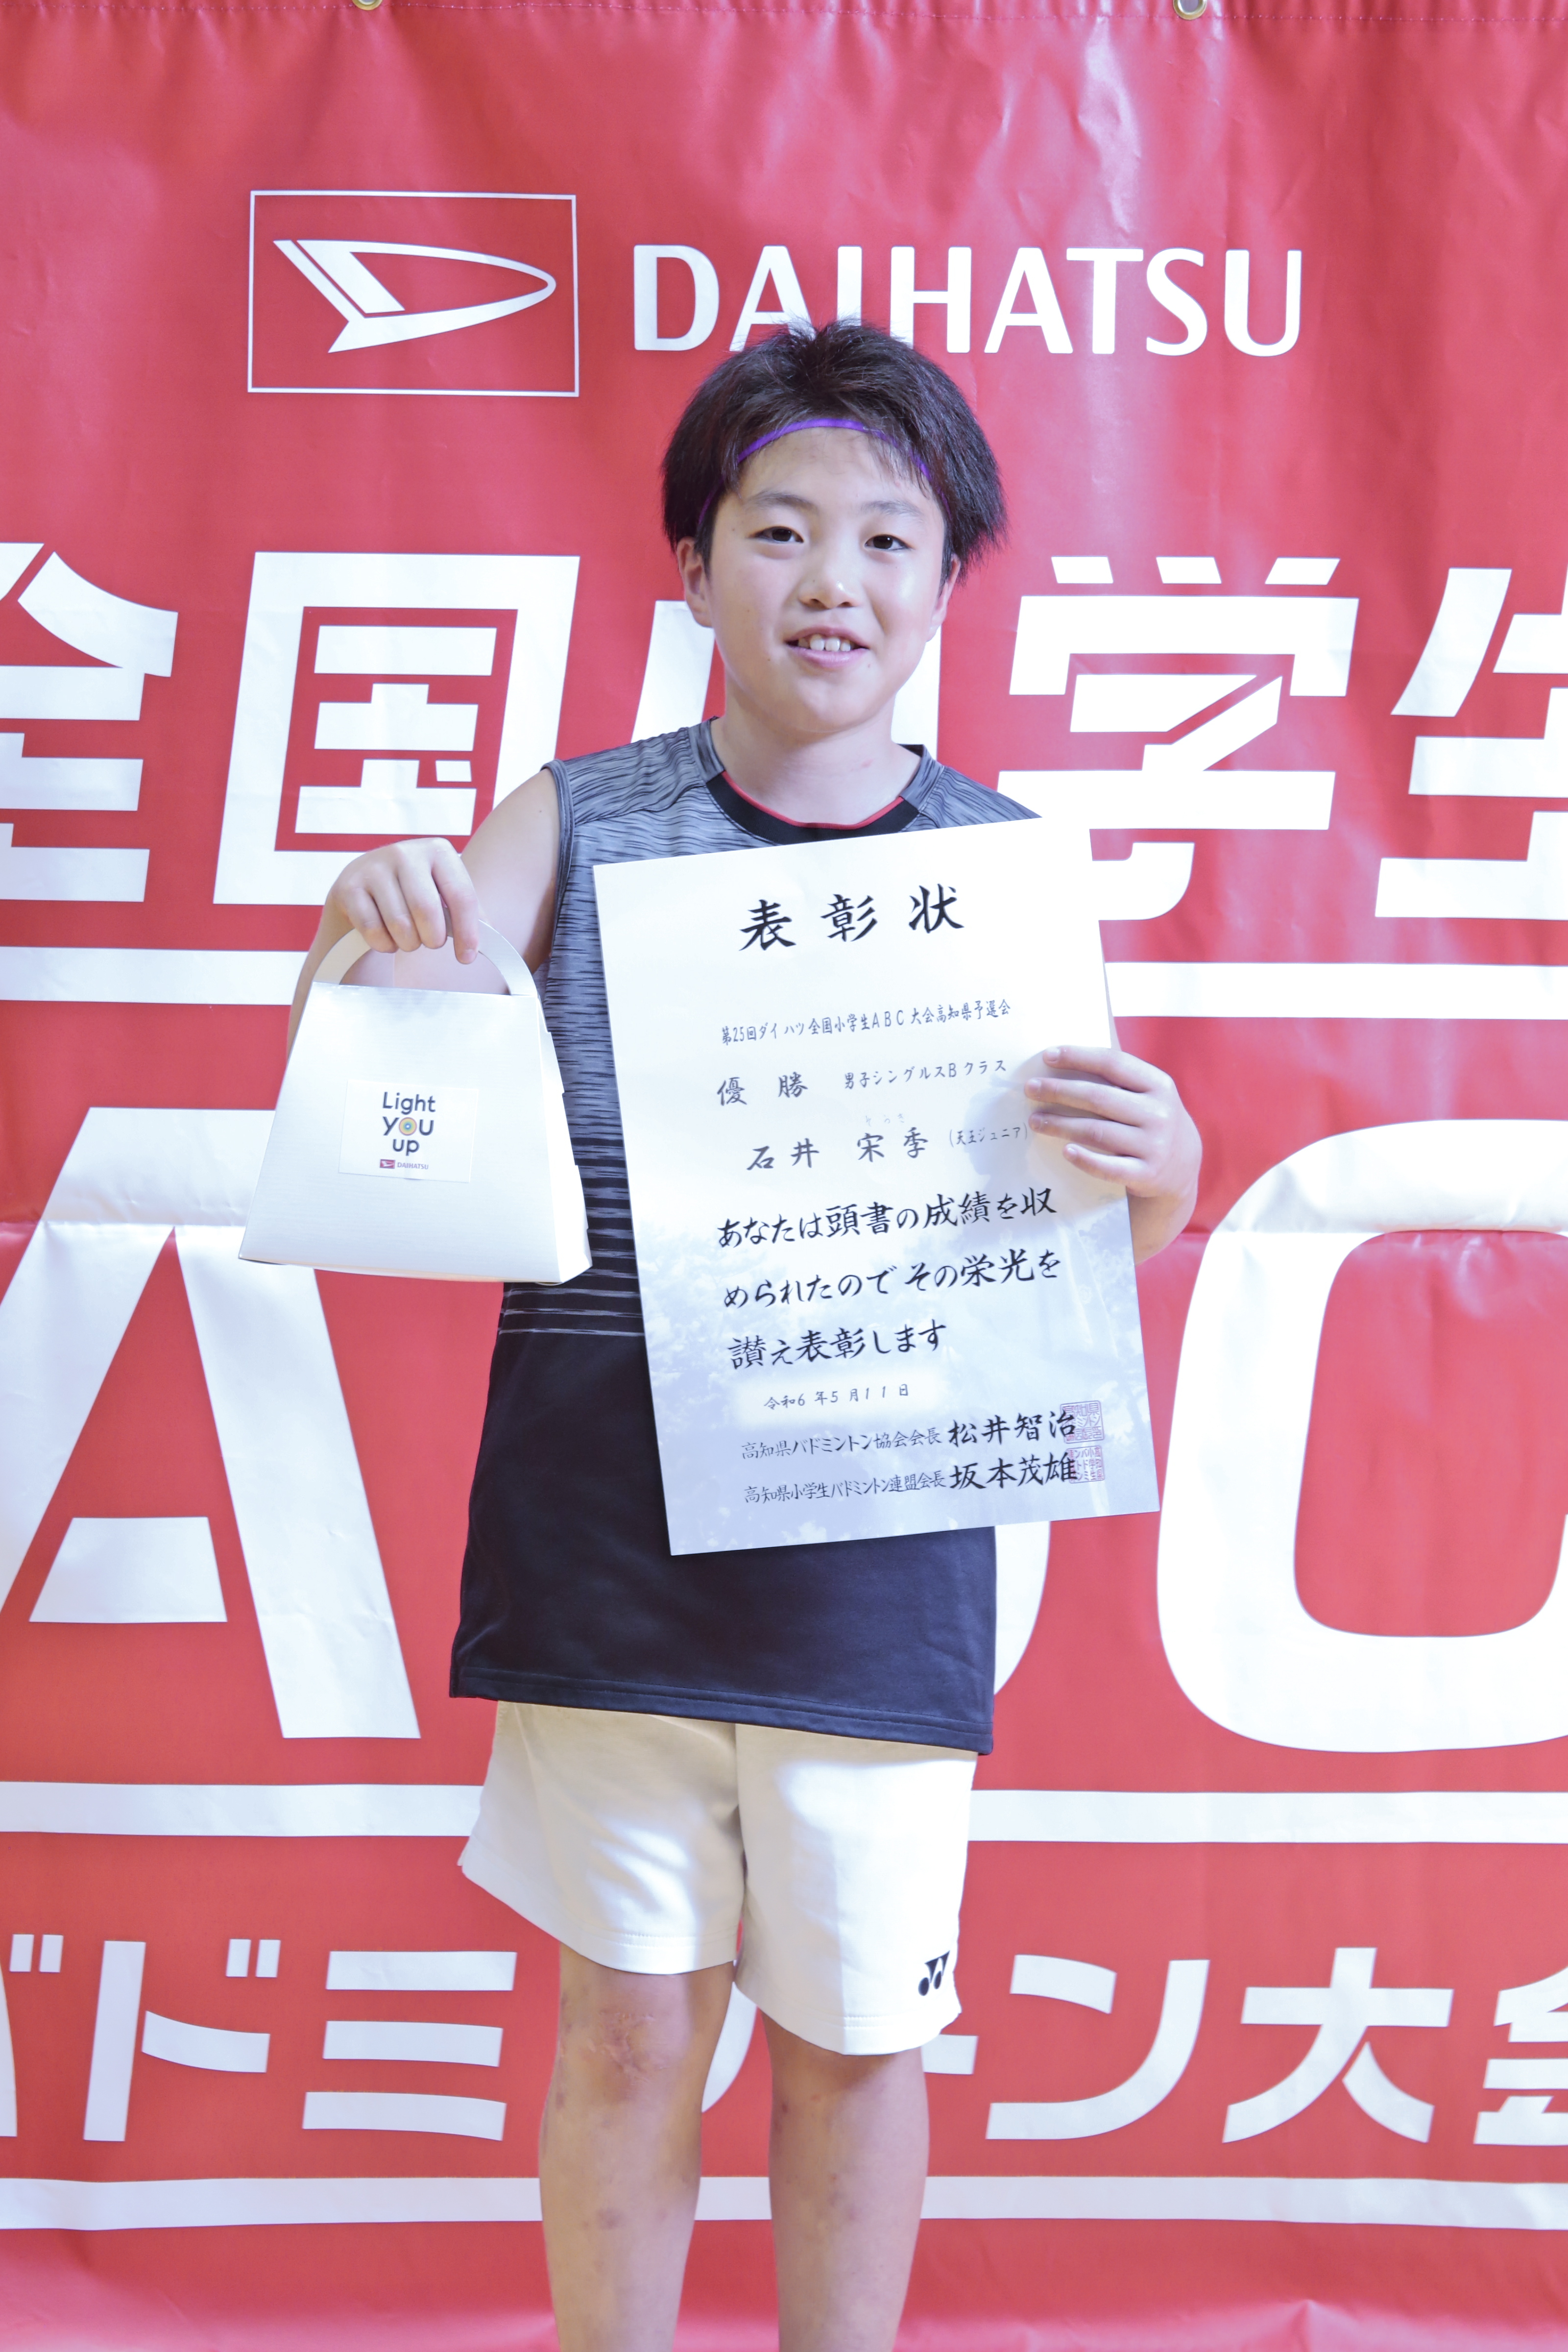 DAIHATSU
全国小学生
ABC
バドミントン大会
Light
YOU
up
DAIHATSU
表彰状
第25回ダイハツ全国小学生ABC大会高知県予選会
優勝 男子シングルスBクラス
そうき
石井 宋季 (天王ジュニア)
あなたは頭書の成績を収
められたのでその栄光を
讃え表彰します
令和6年5月11日
高知県バドミントン協会会長 松井智治
高知県小学生バドミントン連盟会長 坂本茂雄